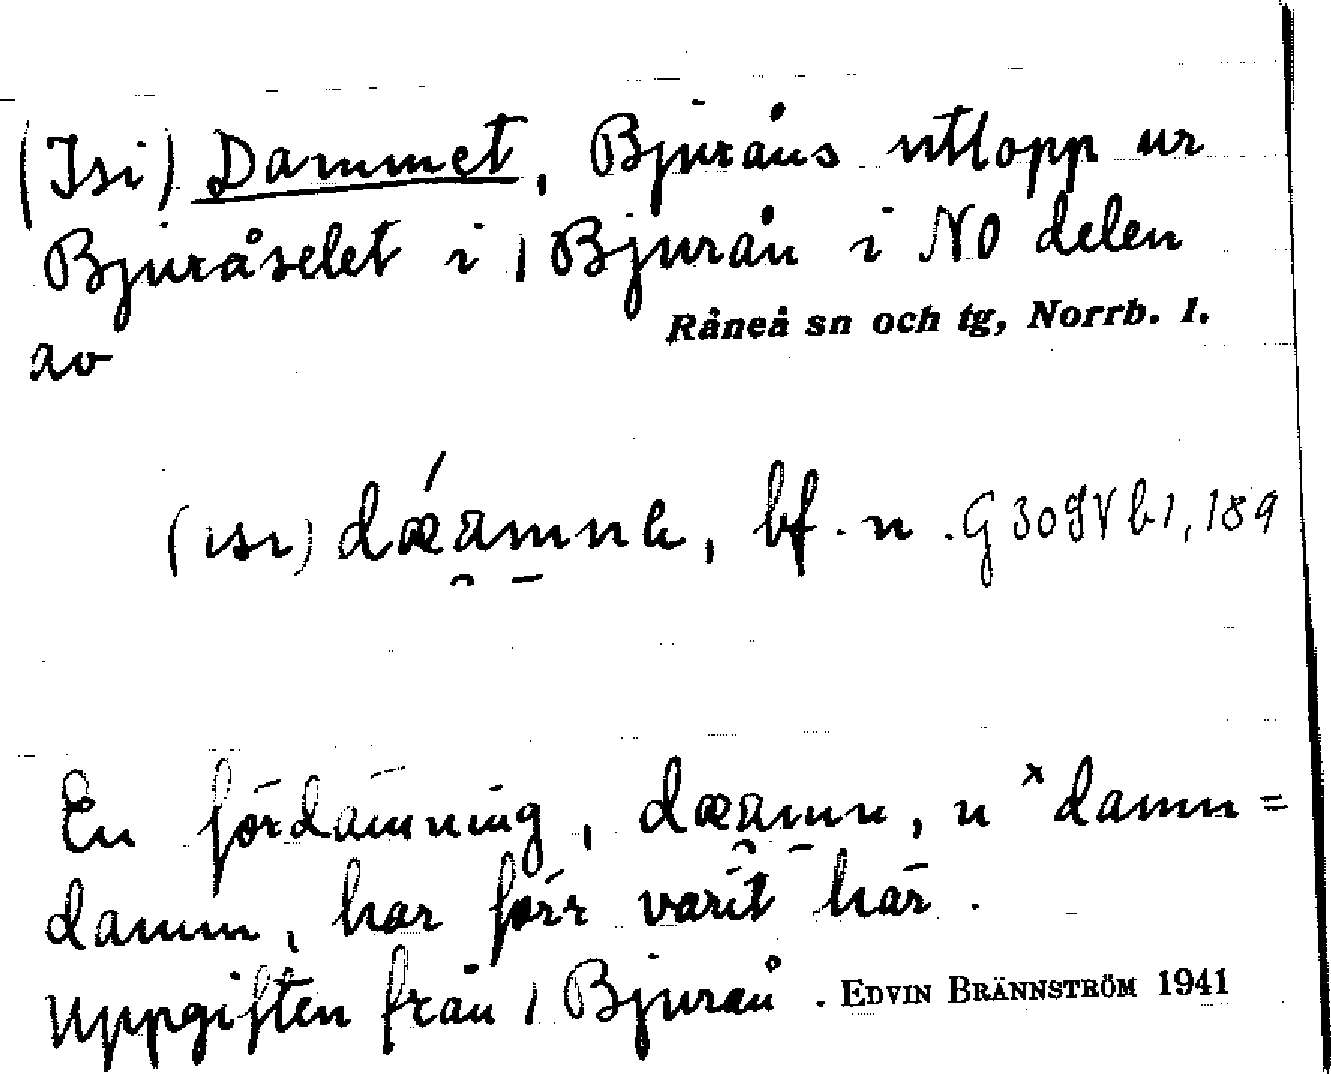 (Isi) Dammet, Bjuråns utlopp ur
Bjuråselet i 1 Bjurån i NO delen
av Råneå sn och tg, Norrb. l.
(ısı) dǽamnɐ, bf. n. G 309Vb1, 189
En fördämning, dæamn, n ˣdamn =
damm, har förr varit här.
Uppgiften från 1 Bjurån. EDVIN BRÄNNSTRÖM 1941